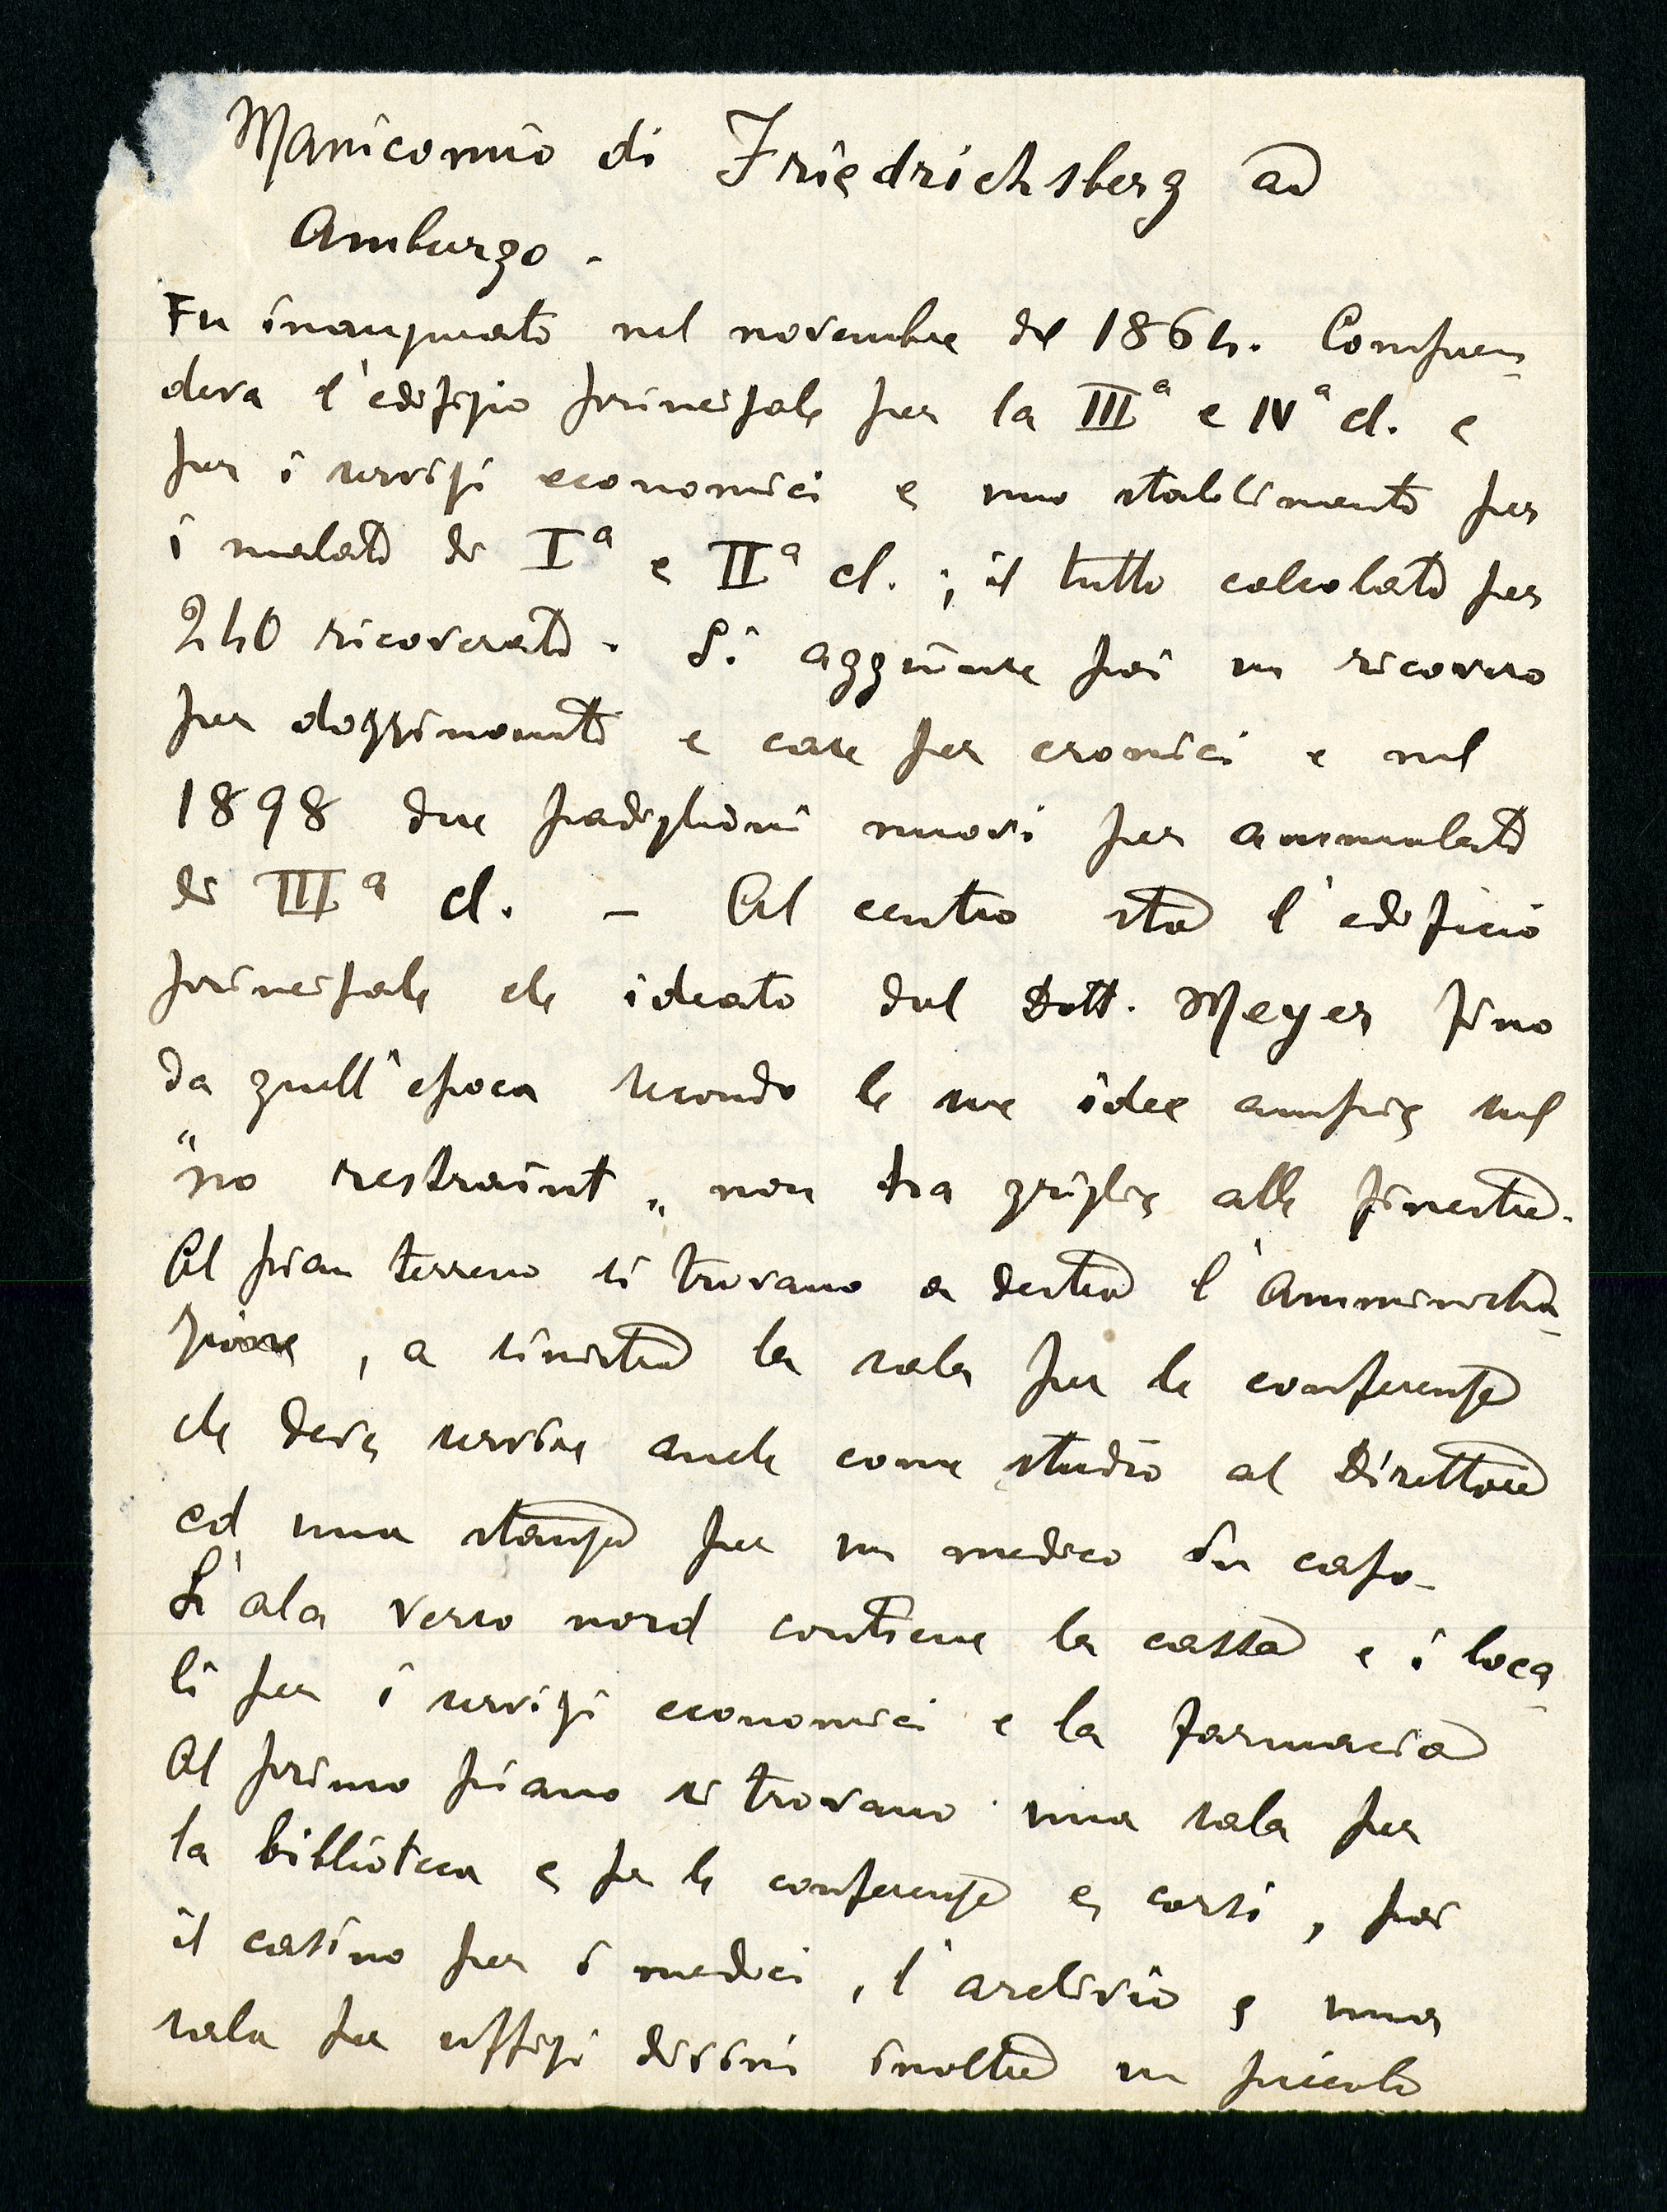 Manicomio di Friedrichsberg ad
Amburgo.
Fu inaugurato nel novembre del 1864. Compren-
deva l'edifizio principale per la IIIª e IVª cl. e
per i servizi economici e uno stabilimento per
i malati di Iª e IIª cl.; il tutto calcolato per
240 ricoverati. Si aggiunse poi un ricovero
per dozzinanti e case per cronici e nel
1898 due padiglioni nuovi per ammalati
di IIIª cl. – Al centro sta l'edificio
principale che ideato dal Dott. Meyer fino
da quell'epoca secondo le sue idee ampie sul
"no restraint" non ha griglie alle finestre.
Al pian terreno si trovano a destra l'Amministra-
zione, a sinistra la sala per le conferenze
che deve servire anche come studio al Direttore
ed una stanza per un medico in capo.
L'ala verso nord contiene la cassa e i loca-
li per i servizi economici e la farmacia
Al primo piano si trovano una sala per
la biblioteca e per le conferenze e corsi, poi
il casino per i medici, l'archivio e una
sala per uffizi divini inoltre un piccolo